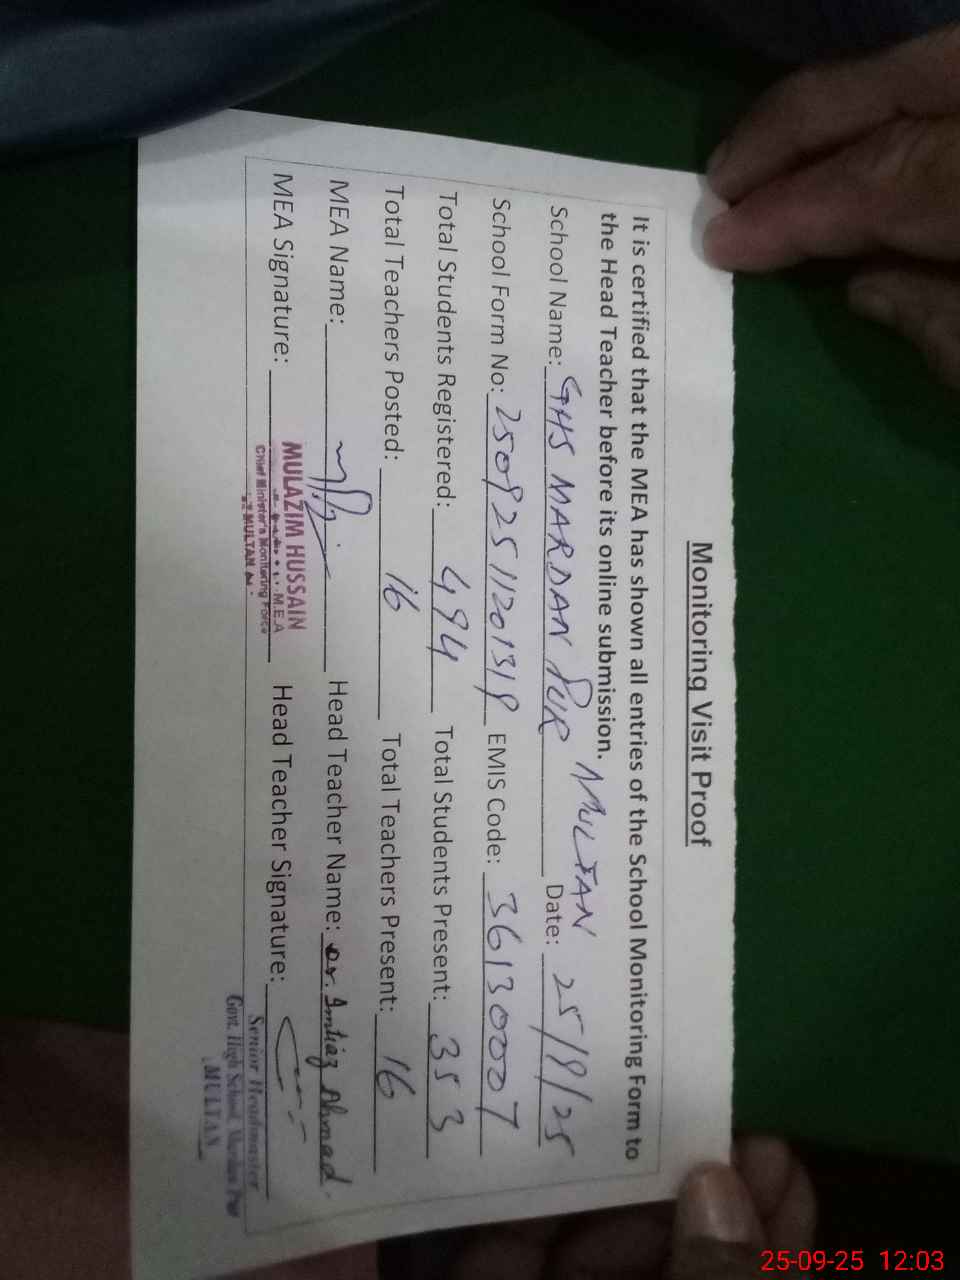 Monitoring Visit Proof
It is certified that the MEA has shown all entries of the School Monitoring Form to
the Head Teacher before its online submission.
School Name: GHS MARDAN PUR MULTAN Date: 25/9/25
School Form No: 250925 11201319 EMIS Code: 36130007
Total Students Registered: 494 Total Students Present: 353
Total Teachers Posted: 16 Total Teachers Present: 16
MEA Name: Head Teacher Name: Dr. Imtiaz Ahmad
MEA Signature: Head Teacher Signature:
MULAZIM HUSSAIN
M.E.A
Chief Minister's Monitoring Force
MULTAN
Senior Headmaster
Govt. High School, Mardan Pur
MULTAN
25-09-25 12:03